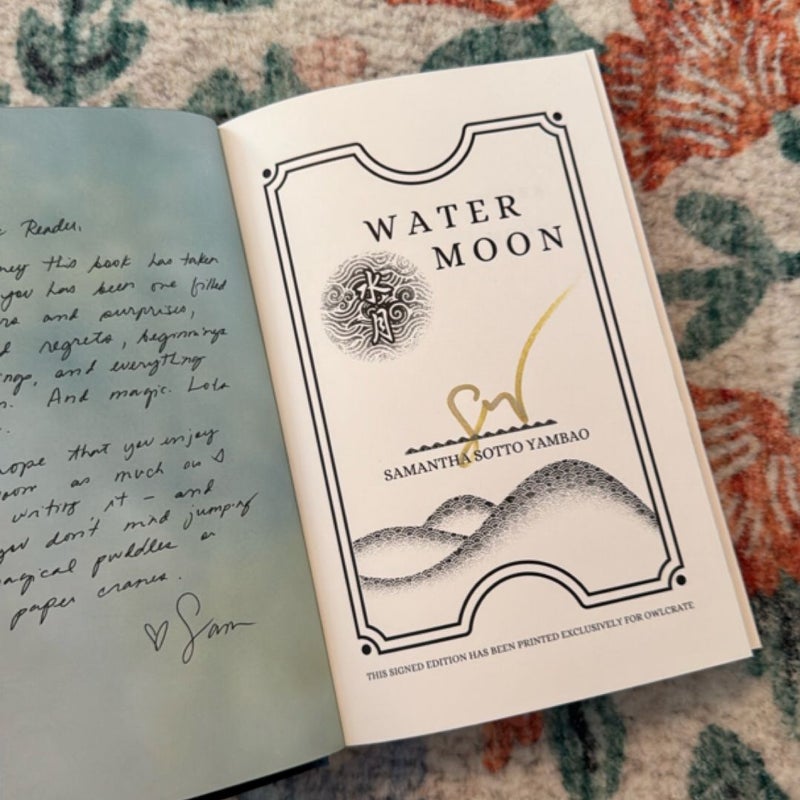 Reader,
this book has taken
you has been one filled
and surprises,
regrets, beginnings
and everything
And magic. Lots
hope that you enjoy
as much as I
writing it – and
you don't mind jumping
magical puddles or
paper cranes.
♡ Sam
WATER
MOON
水月
SAMANTHA SOTTO YAMBAO
THIS SIGNED EDITION HAS BEEN PRINTED EXCLUSIVELY FOR OWLCRATE